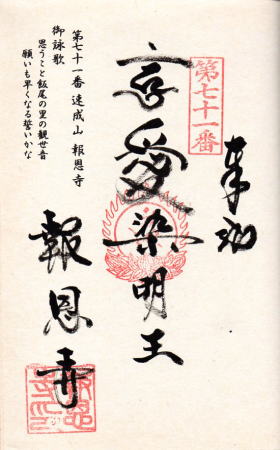 奉納
第七十一番
愛染明王
報恩寺
第七十一番 速成山 報恩寺
御詠歌
思うこと飯尾の里の観世音
願いも早くなる誓いかな